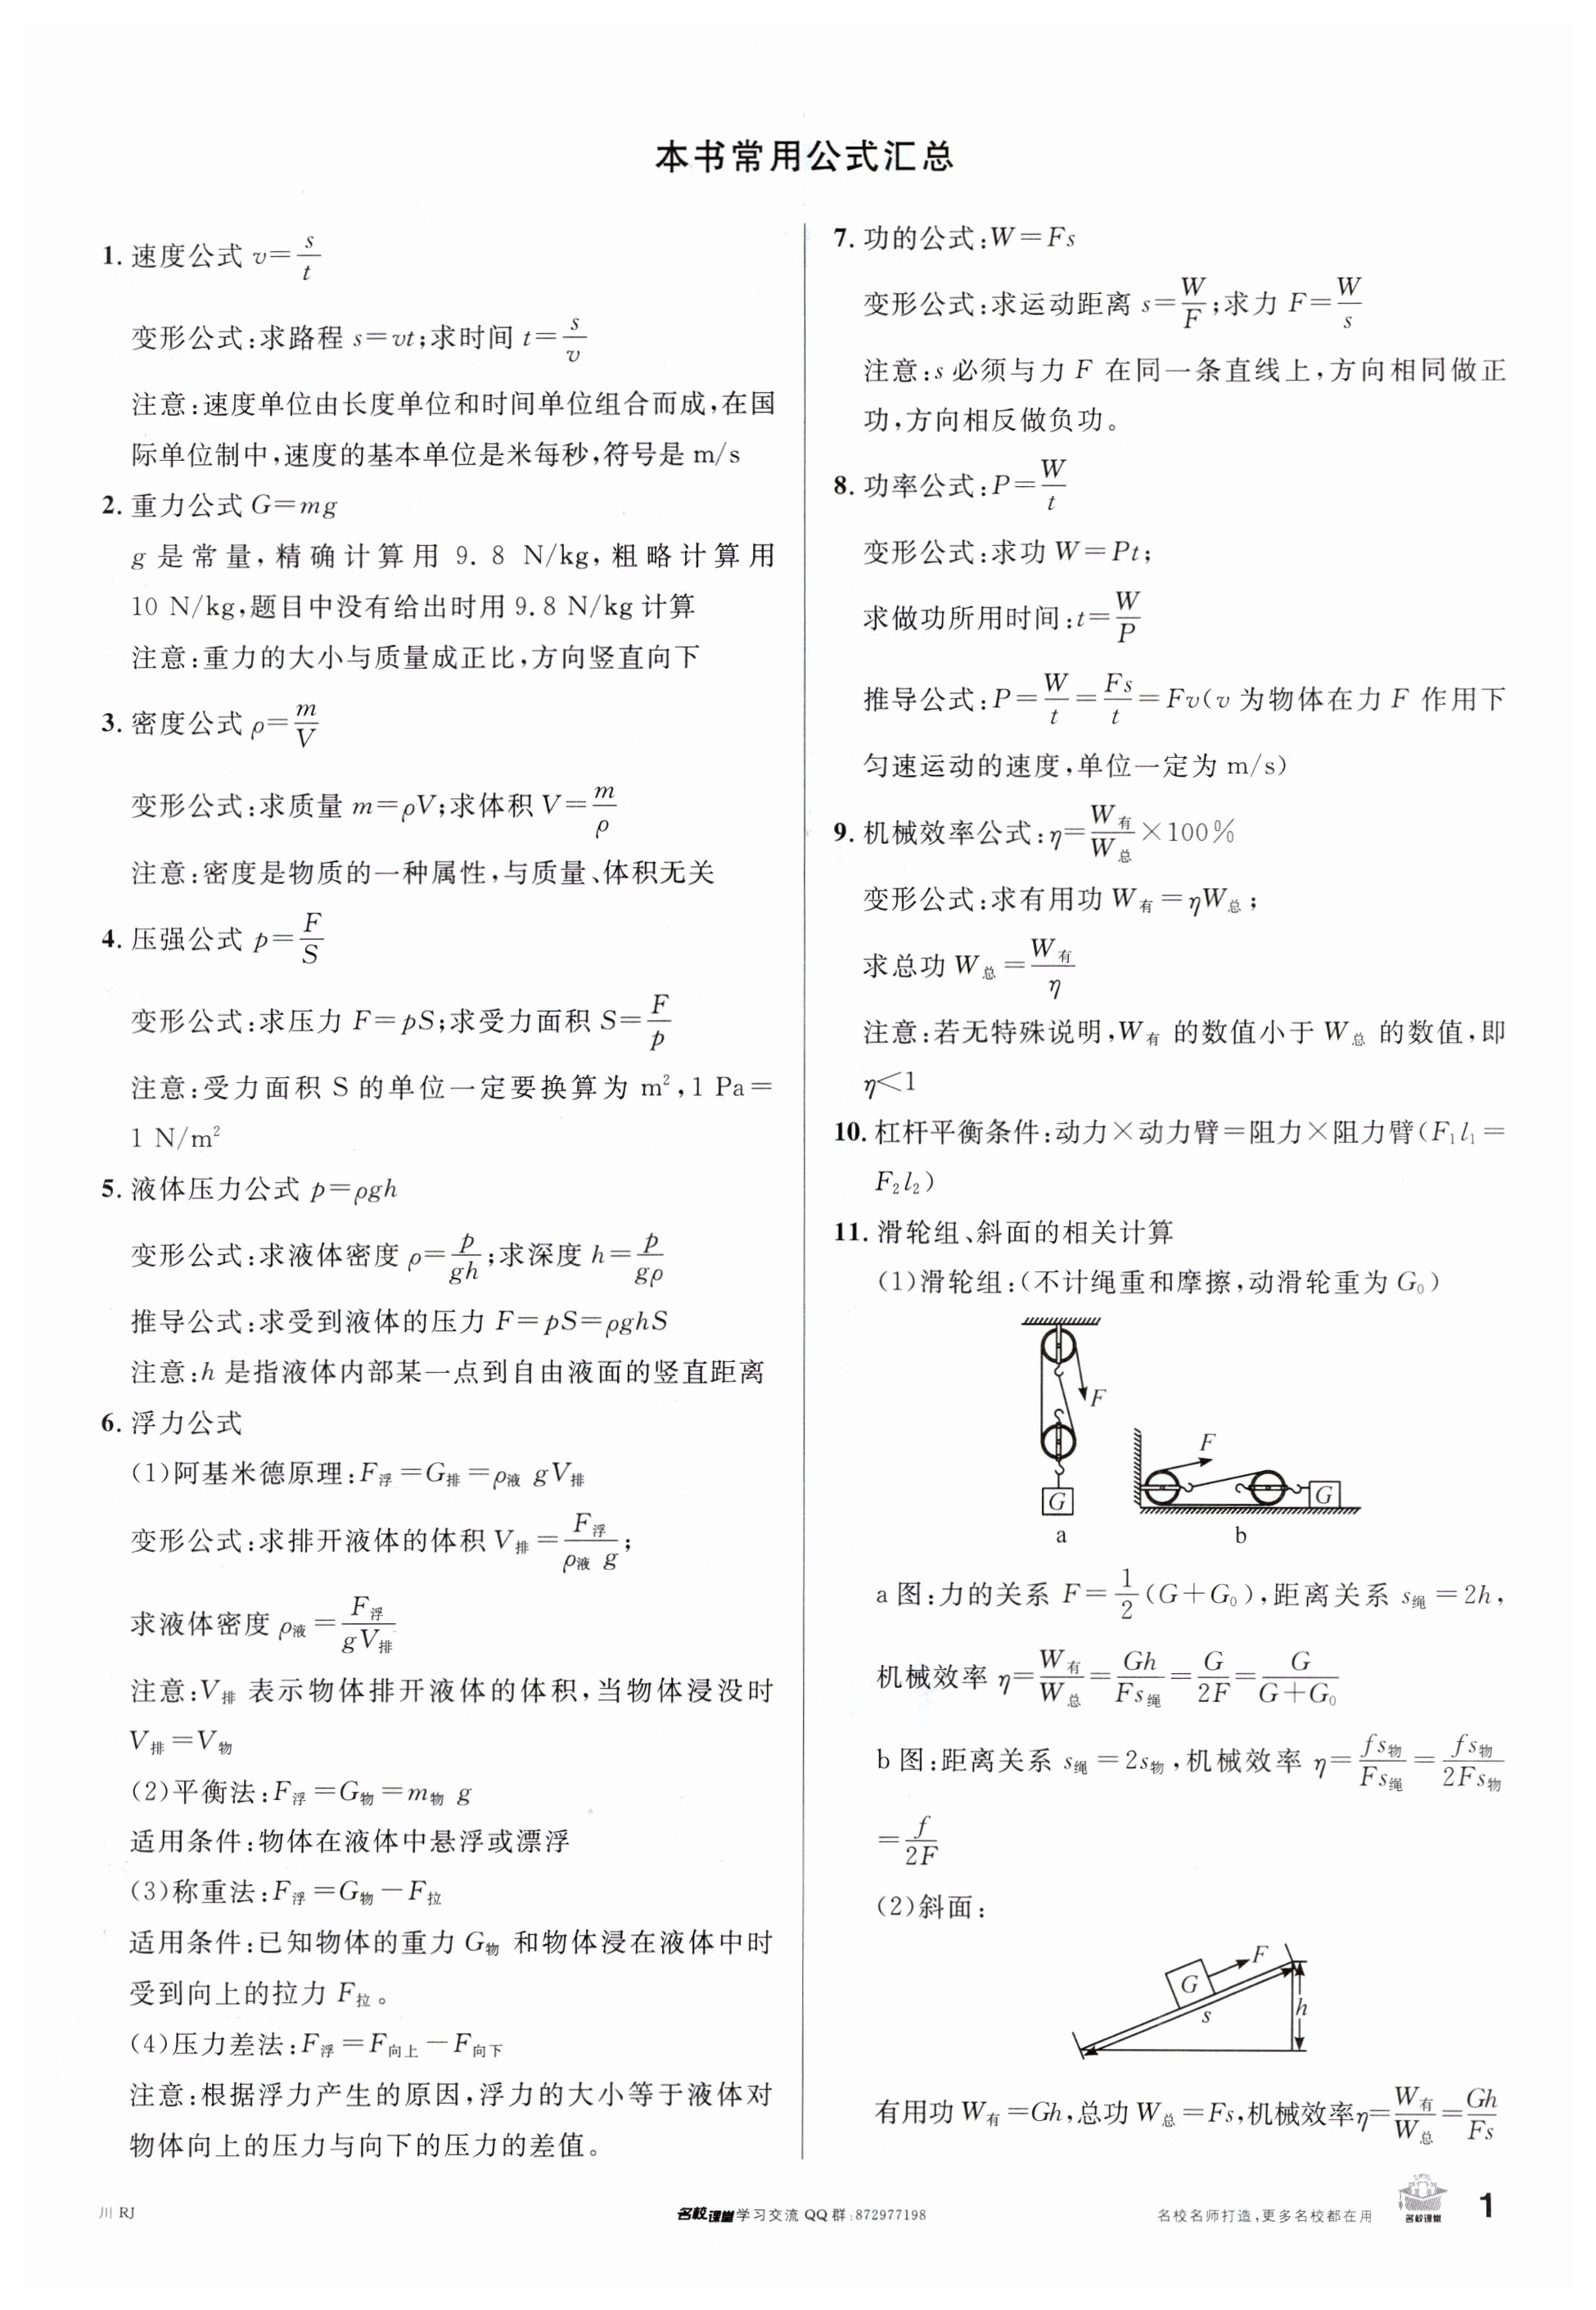 本书常用公式汇总
1. 速度公式 v=s/t
变形公式:求路程 s=vt;求时间 t=s/v
注意:速度单位由长度单位和时间单位组合而成,在国
际单位制中,速度的基本单位是米每秒,符号是 m/s
2. 重力公式 G=mg
g 是常量,精确计算用 9.8 N/kg,粗略计算用
10 N/kg,题目中没有给出时用 9.8 N/kg 计算
注意:重力的大小与质量成正比,方向竖直向下
3. 密度公式 ρ=m/V
变形公式:求质量 m=ρV;求体积 V=m/ρ
注意:密度是物质的一种属性,与质量、体积无关
4. 压强公式 p=F/S
变形公式:求压力 F=pS;求受力面积 S=F/p
注意:受力面积 S 的单位一定要换算为 m²,1 Pa=
1 N/m²
5. 液体压力公式 p=ρgh
变形公式:求液体密度 ρ=p/gh;求深度 h=p/gρ
推导公式:求受到液体的压力 F=pS=ρghS
注意:h 是指液体内部某一点到自由液面的竖直距离
6. 浮力公式
(1)阿基米德原理:F浮=G排=ρ液 gV排
变形公式:求排开液体的体积 V排=F浮/ρ液 g;
求液体密度 ρ液=F浮/gV排
注意:V排 表示物体排开液体的体积,当物体浸没时
V排=V物
(2)平衡法:F浮=G物=m物 g
适用条件:物体在液体中悬浮或漂浮
(3)称重法:F浮=G物-F拉
适用条件:已知物体的重力 G物 和物体浸在液体中时
受到向上的拉力 F拉。
(4)压力差法:F浮=F向上-F向下
注意:根据浮力产生的原因,浮力的大小等于液体对
物体向上的压力与向下的压力的差值。
7. 功的公式:W=Fs
变形公式:求运动距离 s=W/F;求力 F=W/s
注意:s 必须与力 F 在同一条直线上,方向相同做正
功,方向相反做负功。
8. 功率公式:P=W/t
变形公式:求功 W=Pt;
求做功所用时间:t=W/P
推导公式:P=W/t=Fs/t=Fv(v 为物体在力 F 作用下
匀速运动的速度,单位一定为 m/s)
9. 机械效率公式:η=W有/W总×100%
变形公式:求有用功 W有=ηW总;
求总功 W总=W有/η
注意:若无特殊说明,W有 的数值小于 W总 的数值,即
η<1
10. 杠杆平衡条件:动力×动力臂=阻力×阻力臂(F₁l₁=
F₂l₂)
11. 滑轮组、斜面的相关计算
(1)滑轮组:(不计绳重和摩擦,动滑轮重为 G₀)
F
G
a
F
G
b
a 图:力的关系 F=1/2(G+G₀),距离关系 s绳=2h,
机械效率 η=W有/W总=Gh/Fs绳=G/2F=G/G+G₀
b 图:距离关系 s绳=2s物,机械效率 η=fs物/Fs绳=fs物/2Fs物
=f/2F
(2)斜面:
G
F
s
h
有用功 W有=Gh,总功 W总=Fs,机械效率η=W有/W总=Gh/Fs
川 RJ
名校课堂 学习交流 QQ 群:872977198
名校名师打造,更多名校都在用
名校课堂
1